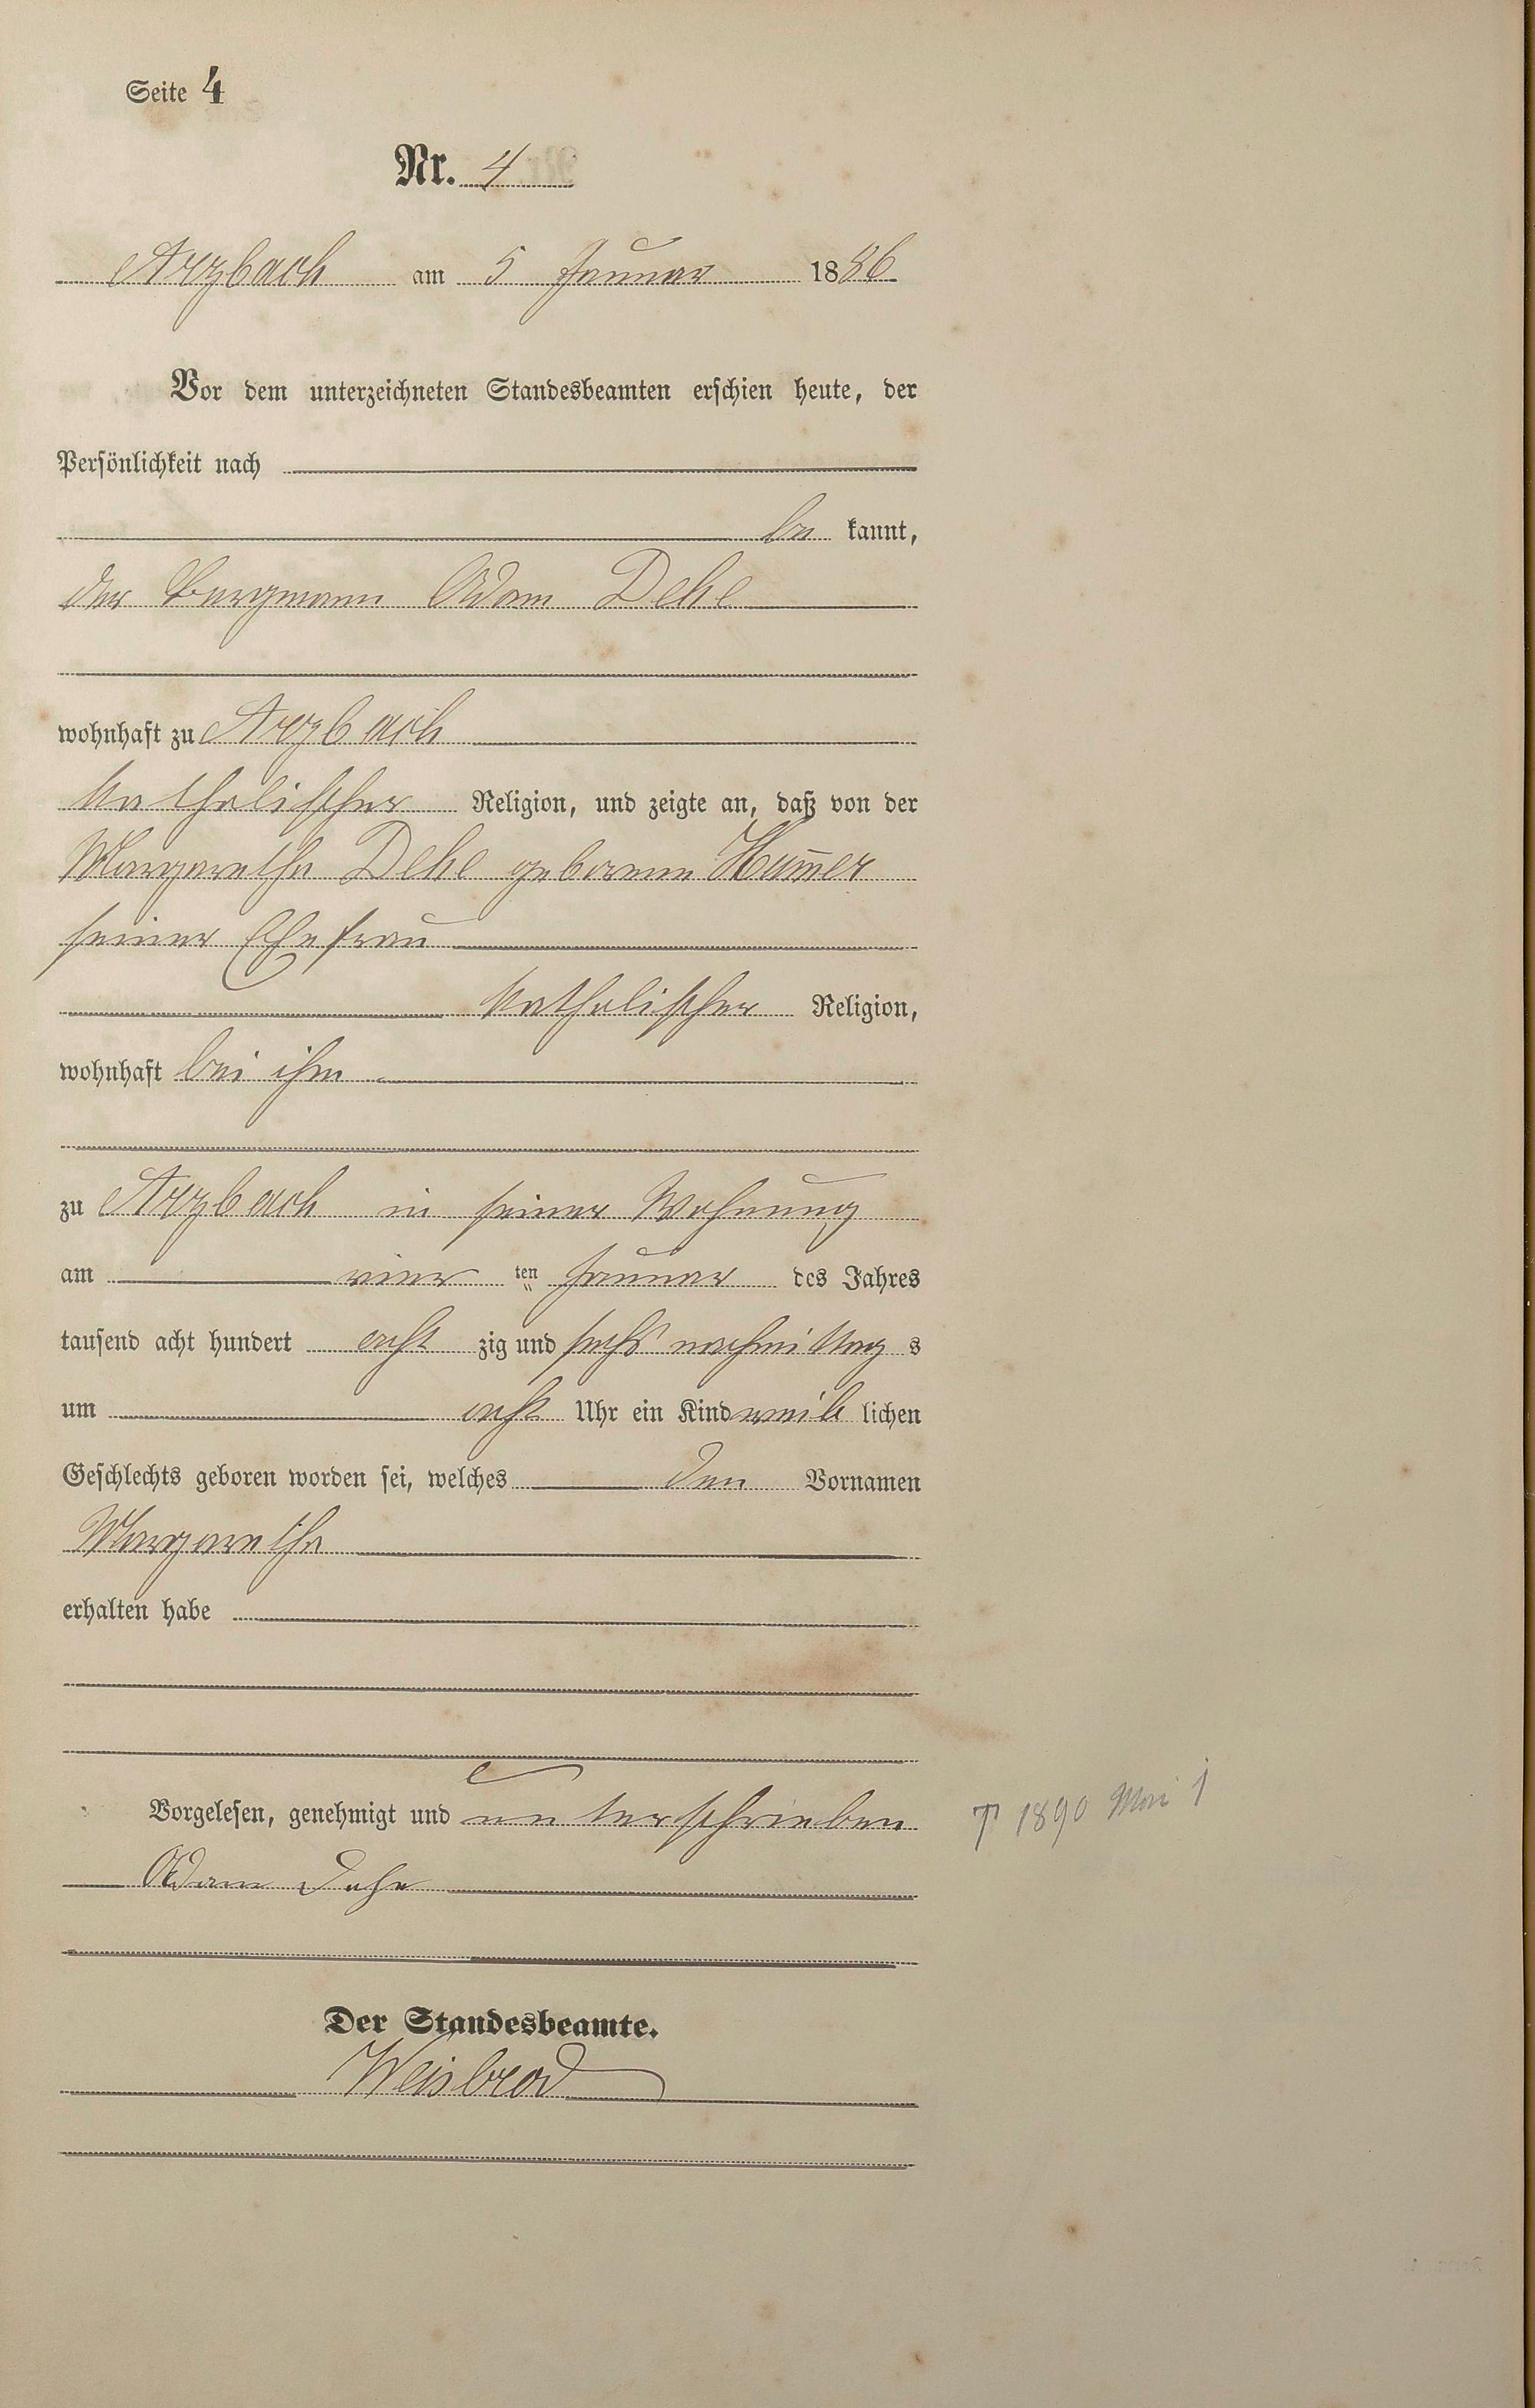 Seite 4
Nr. 4
Arzbach am 5 Januar 1886
Vor dem unterzeichneten Standesbeamten erschien heute, der
Persönlichkeit nach
be kannt,
der Bergmann Adam Dehe
wohnhaft zu Arzbach
katholischer Religion, und zeigte an, daß von der
Margaretha Dehe geborenen Hum̅er
seiner Ehefrau
katholischer Religion,
wohnhaft bei ihm
zu Arzbach in seiner Wohnung
am vier ten Januar des Jahres
tausend acht hundert acht zig und sechs nachmittag s
um acht Uhr ein Kind weib lichen
Geschlechts geboren worden sei, welches den Vornamen
Margaretha
erhalten habe
Vorgelesen, genehmigt und unterschrieben
Adam Dehe
† 1890 Mai 1
Der Standesbeamte.
Weisbrod